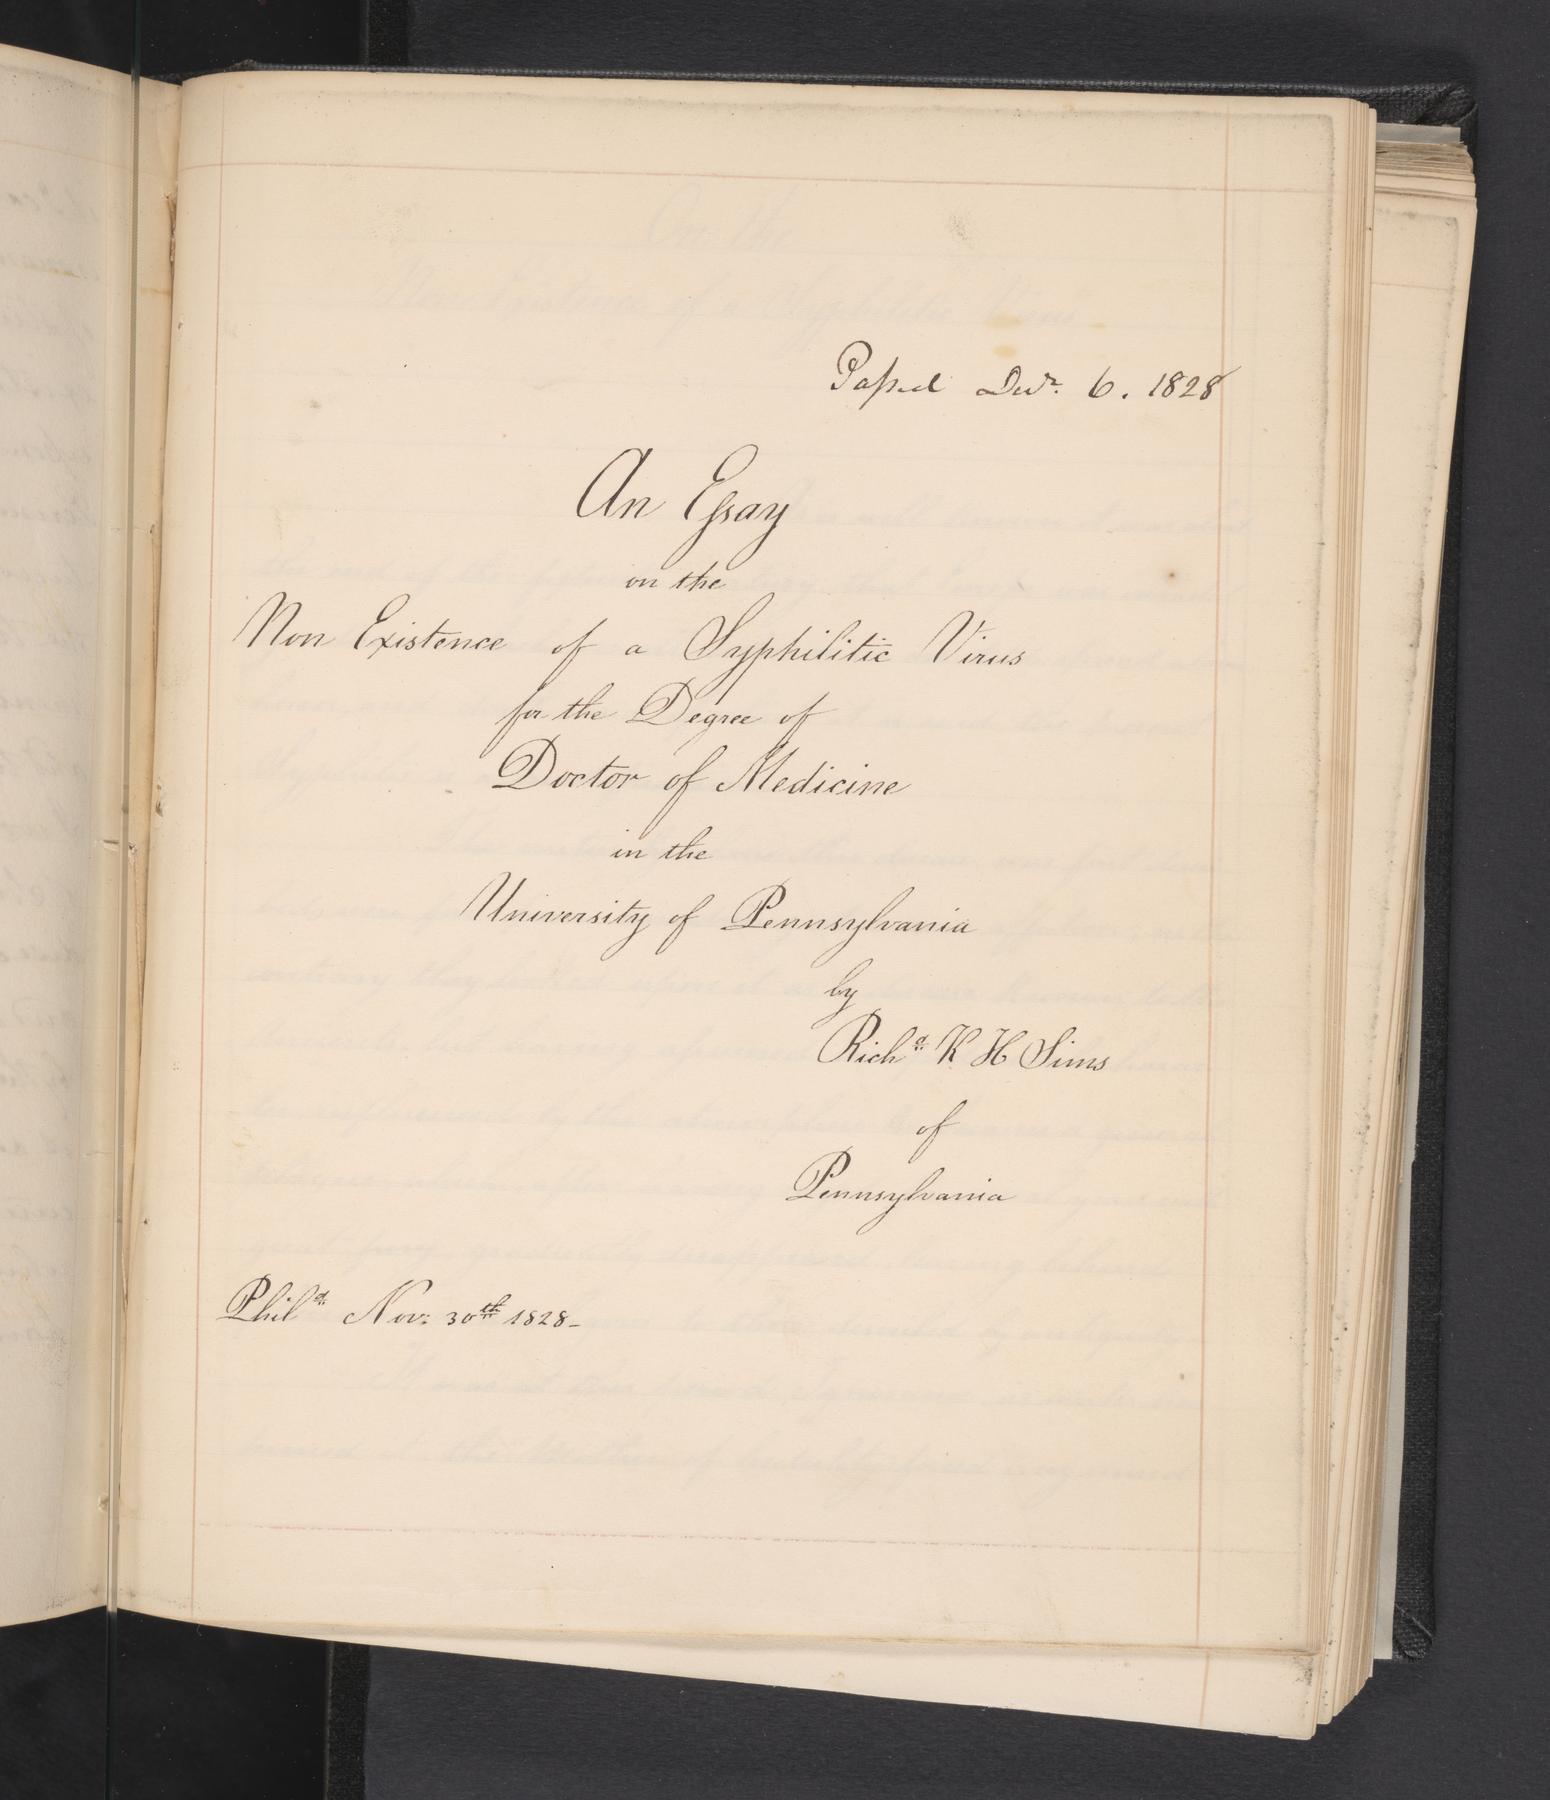 Passed Decr. 6. 1828
An Essay
on the
Non Existence of a Syphilitic Virus
for the Degree of
Doctor of Medicine
in the
University of Pennsylvania
by
Richd K H Sims
of
Pennsylvania
Phila Nov: 30th 1828-